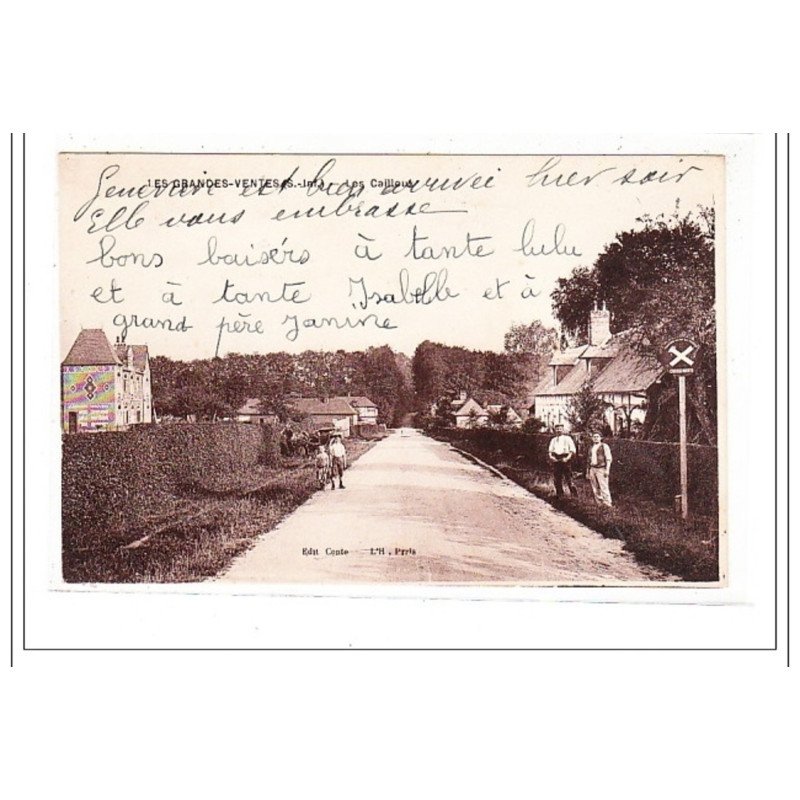 LES GRANDES-VENTES (S.-Inf.) - Les Cailloux
est bien arrivée hier soir
Elle vous embrasse
bons baisérs à tante lulu
et à tante Isabelle et à
grand père Janine
Edit Conte L'H., Paris